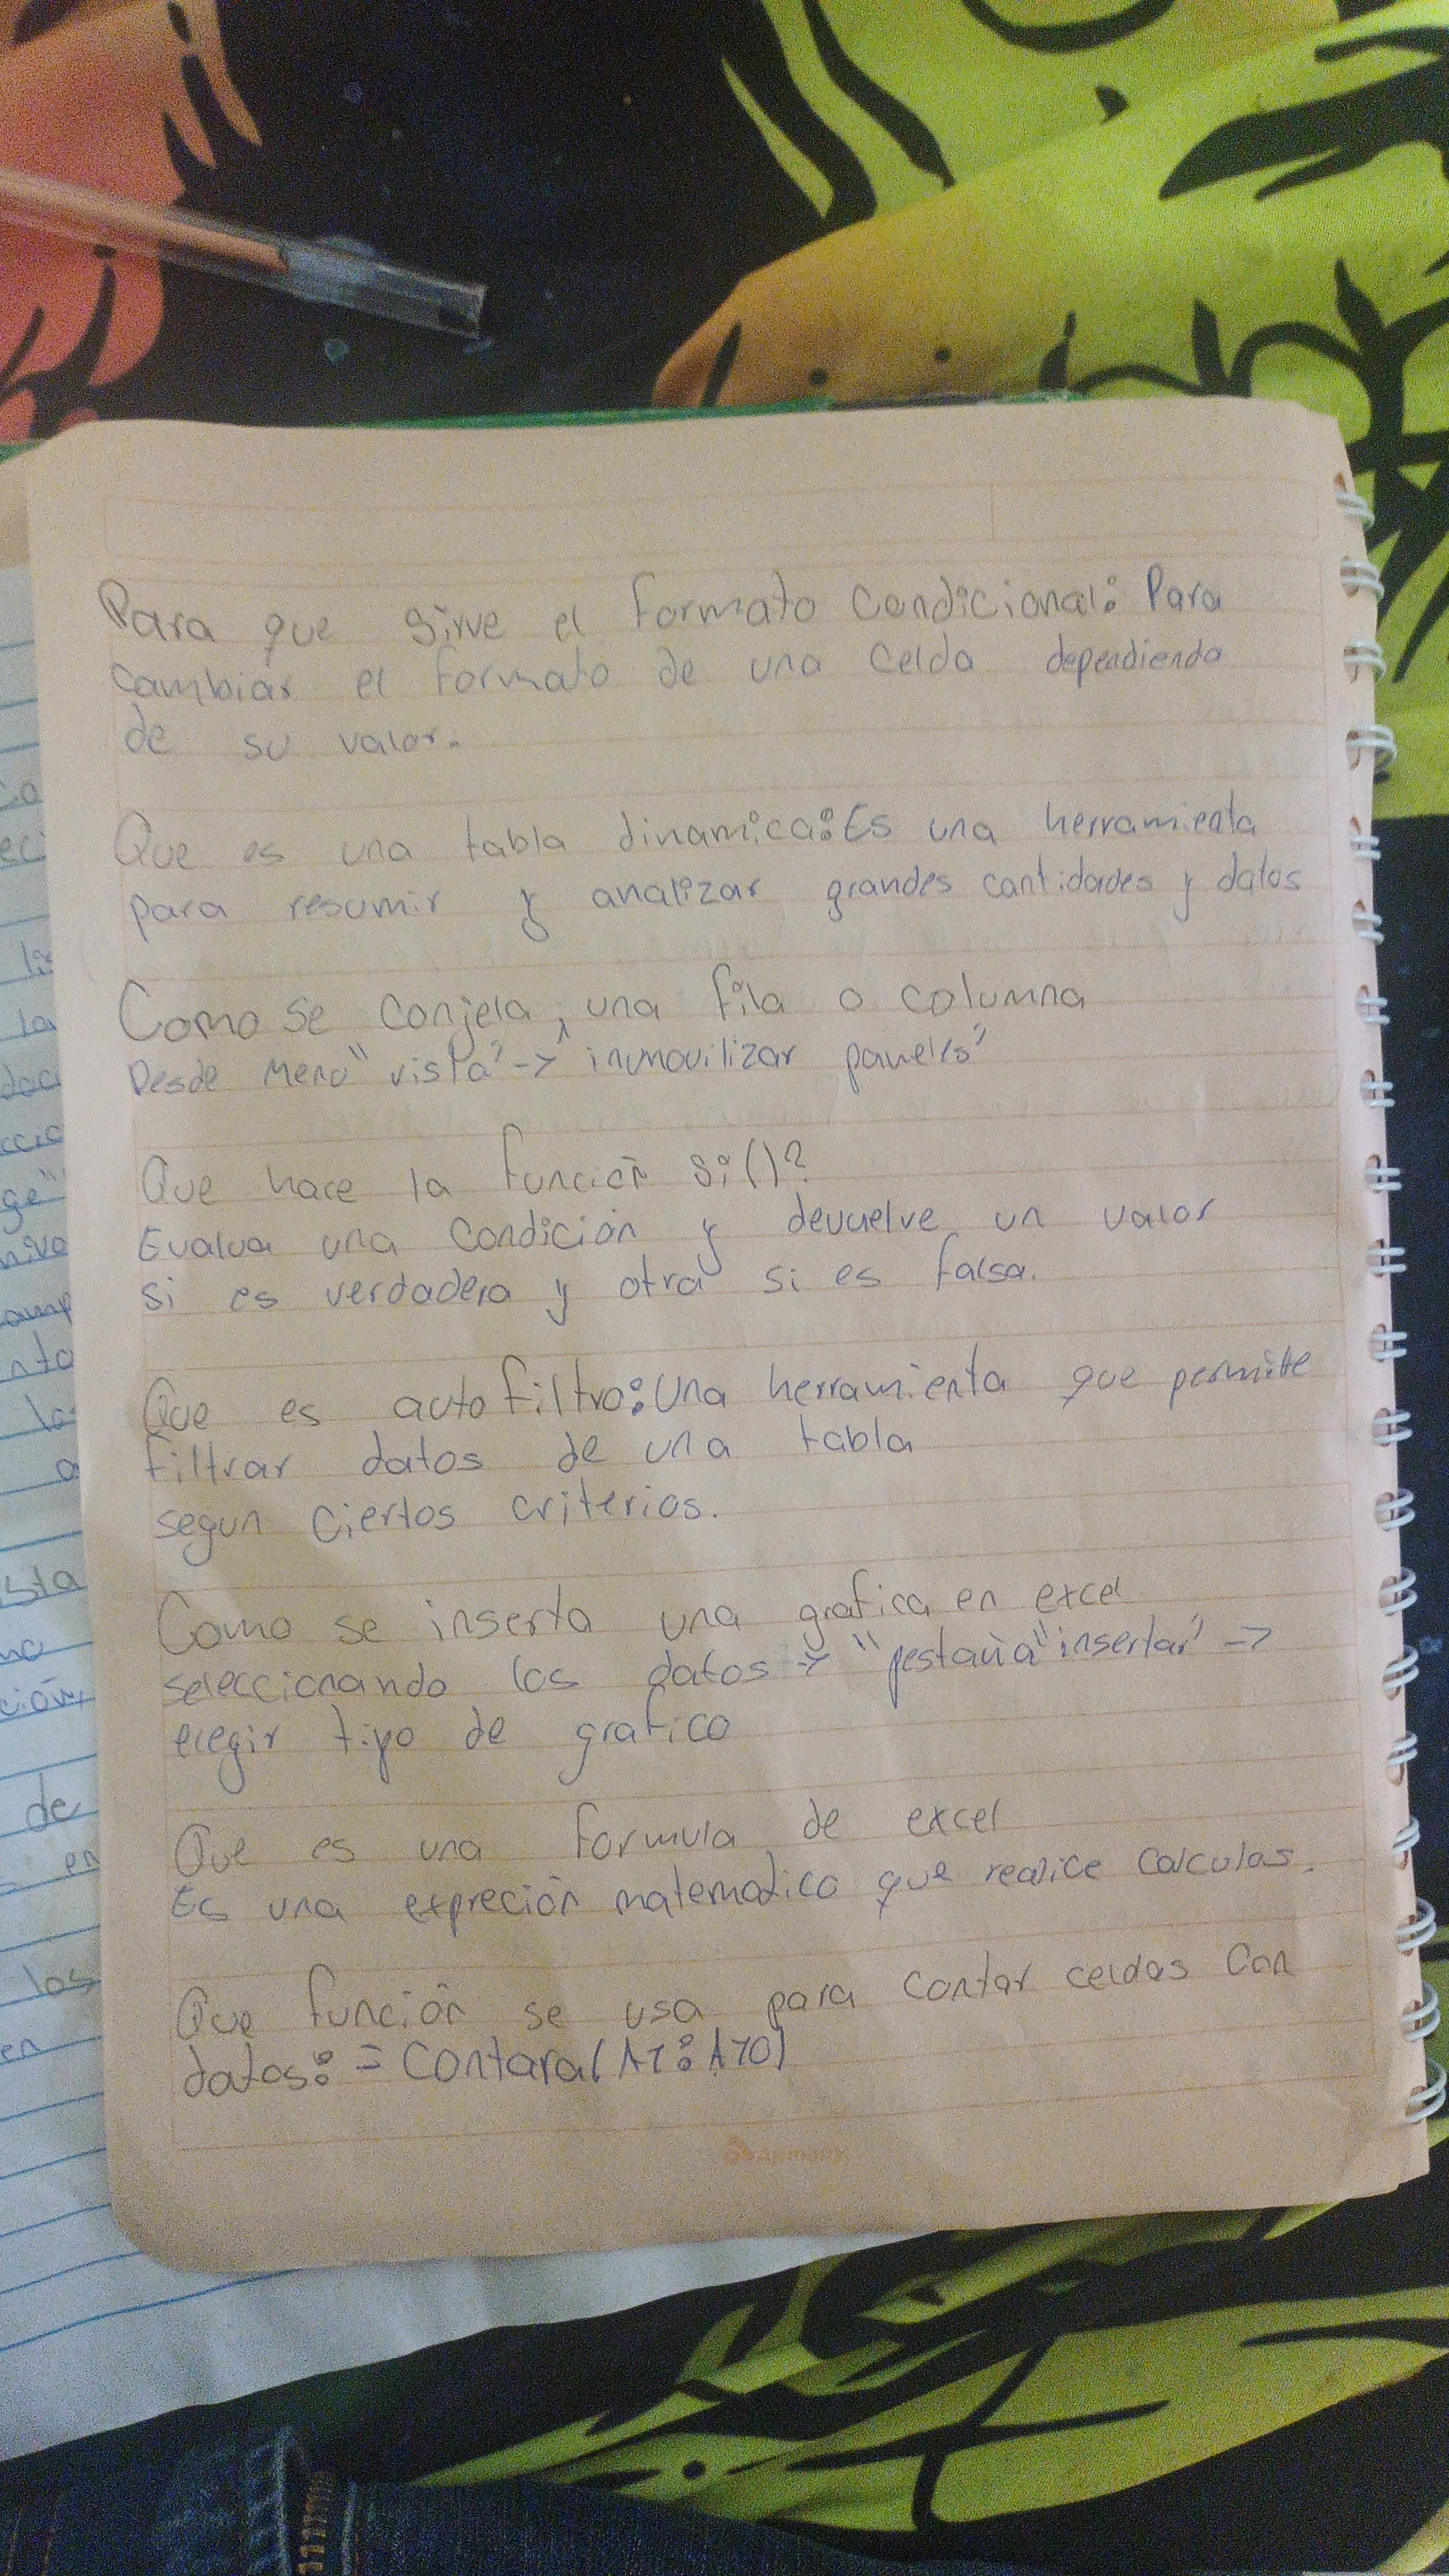 Para que sirve el formato Condicional: Para
cambiar el formato de una celda dependienda
de su valor.
Que es una tabla dinamica: Es una herramienta
para resumir y analizar grandes cantidades y datos
Como se conjela, una fila o columna
Desde Menú "vista" -> "inmovilizar paneles"
Que hace la función Si()?
Evalua una condición y devuelve un valor
si es verdadera y otra si es falsa.
Que es auto filtro: Una herramienta que permite
filtrar datos de una tabla
segun ciertos criterios.
Como se inserta una grafica en excel
seleccionando los datos -> "pestaña "insertar" ->
elegir tipo de grafico
Que es una formula de excel
Es una expreción matematico que realice calculas.
Que función se usa para contar celdas Con
datos: = Contara(A1:A10)
ca
eci
la
ccic
ge"
niva
amp
nto
la
a
sta
na
ción
de
en
los
en